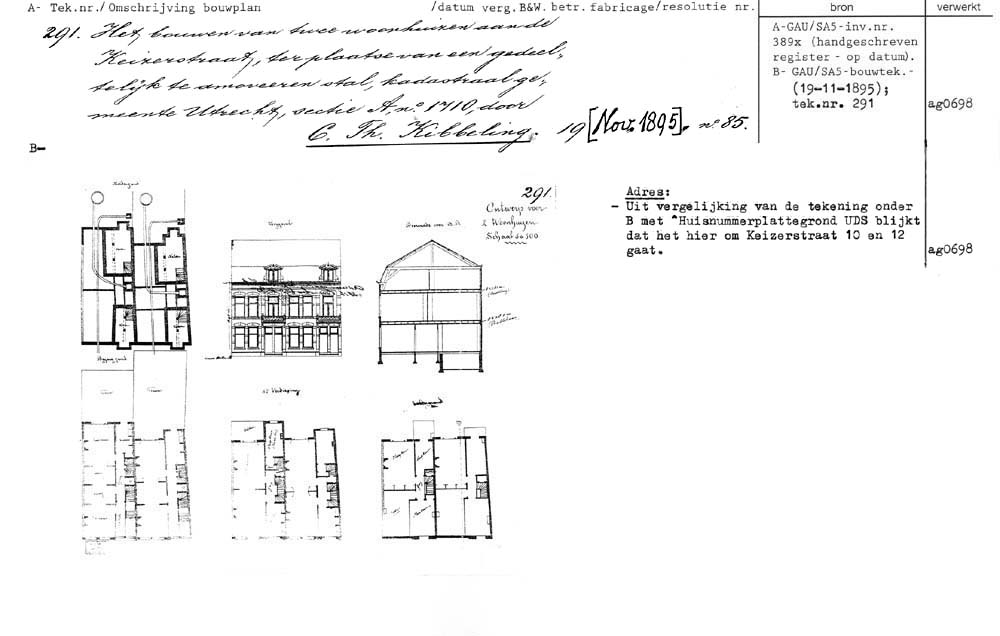 A- Tek.nr./Omschrijving bouwplan /datum verg.B&W. betr. fabricage/resolutie nr. bron verwerkt
291. Het bouwen van twee woonhuizen aan de
Keizerstraat, ter plaatse van een gedeel-
telijk te amoveeren stal, kadastraal ge-
meente Utrecht, sectie A, no. 1710, door
C. Th. Kibbeling. 19 [Nov. 1895]. no. 85.
A-GAU/SA5-inv.nr.
389x (handgeschreven
register - op datum).
B- GAU/SA5-bouwtek.-
(19-11-1895);
tek.nr. 291
ag0698
B-
291.
Ontwerp voor
2 Woonhuizen
Schaal 1 à 100
Adres:
- Uit vergelijking van de tekening onder
B met "Huisnummerplattegrond UDS blijkt
dat het hier om Keizerstraat 10 en 12
gaat.
ag0698